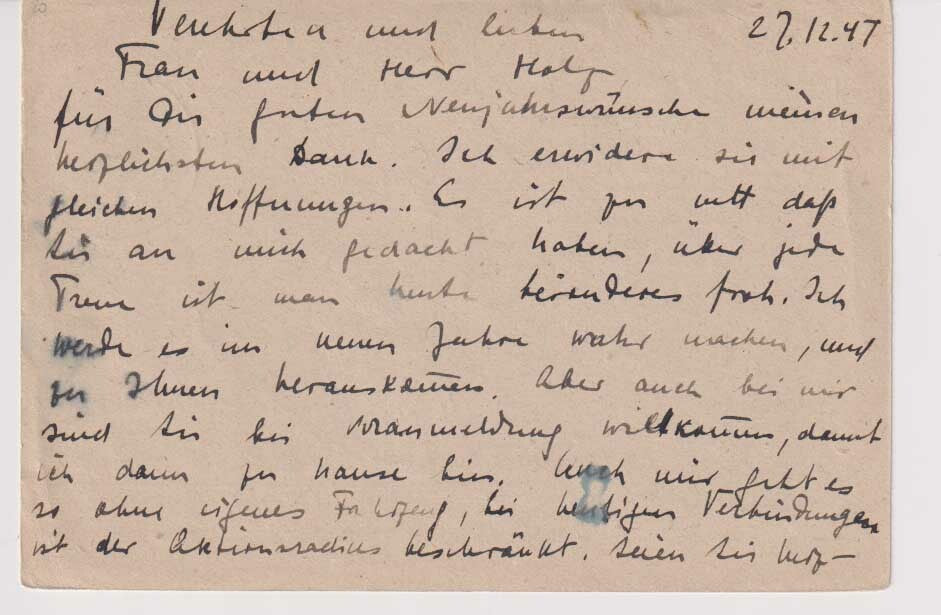 Verehrten und lieben 27.12.47
Frau und Herr
für die guten Neujahrswünsche meinen
herzlichsten Dank. Ich erwidere sie mit
gleichen Hoffnungen. Es ist zu nett daß
Sie an mich gedacht haben, über jede
Treue ist man heute besonderes froh. Ich
werde es im neuen Jahre wahr machen, und
zu Ihnen herauskom̅en. Aber auch bei mir
sind Sie bei Voranmeldung willkom̅en, damit
ich dann zu hause bin. Auch mir geht es
so ohne eigenes Fahrzeug, bei heutigen Verbindungen
ist der Aktionsradius beschränkt. Seien Sie herz–